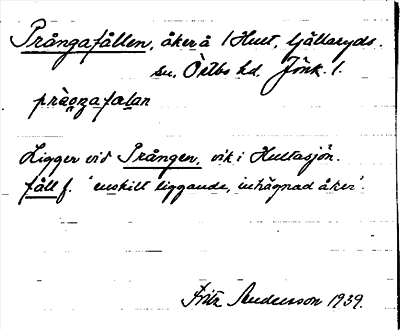 Prångafållen, åker å 1 Hult, Ljällaryds
sn. Östbo hd. Jönk. l.
pràŋgafalan
Ligger vid Prången, vik i Hultasjön.
fåll f. 'enskilt liggande, inhägnad åker'.
Fritz Andersson 1939.